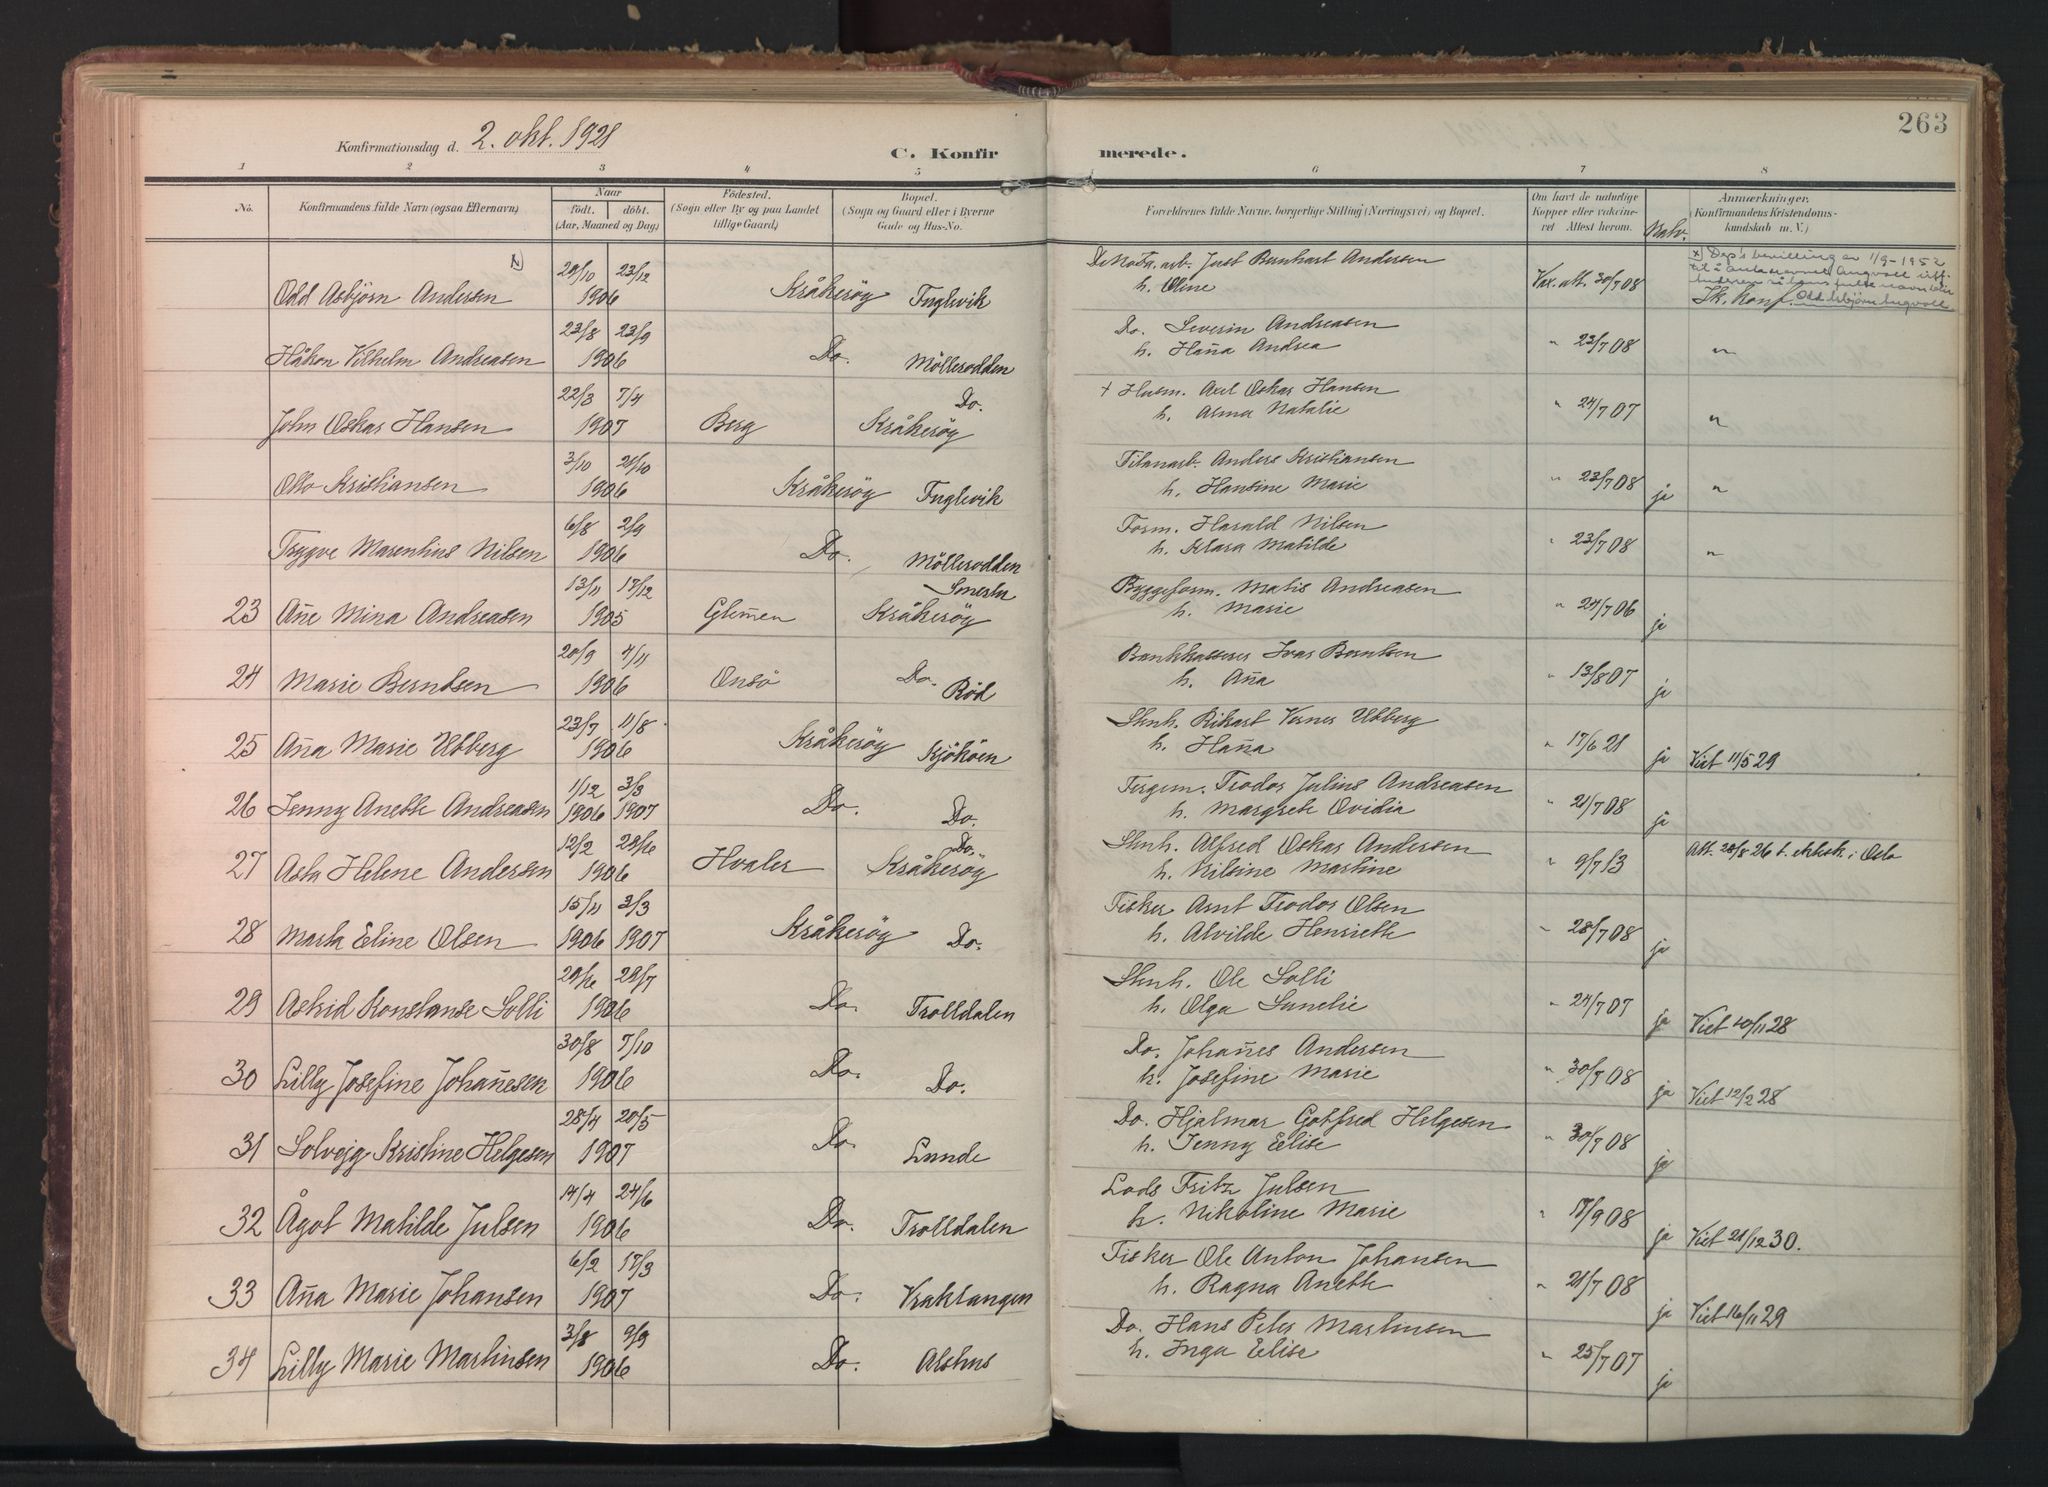 263
Konfirmationsdag d. 2. okt. 1921
C. Konfirmerede.
1 2 3 4 5 6 7 8
No. Konfirmandens fulde Navn (ogsaa Efternavn) Naar födt. döbt. (Aar, Maaned og Dag) Födested. (Sogn eller By og paa Landet tillige Gaard) Bopæl. (Sogn og Gaard eller i Byerne Gade og Hus-No. Forældrenes fulde Navne, borgerlige Stilling (Næringsvei) og Bopæl. Om havt de naturlige Kopper eller vaksineret Attest herom. Anmærkninger. (Konfirmandens Kristendomskundskab m. V.)
Odd Asbjörn Andersen 29/10 23/12 1906 Kråkeröy Fuglevik Just Bernhart Andersen h. Oline Vax. att. 30/7 08 x) Dep's bevilling av 1/9-1952 Odd Asbjörn Angvoll
Håkon Vilhelm Andreasen 23/8 23/9 1906 Do. Möllerodden Do. Severin Andreasen h. Hana Andrea " 23/7 08 "
John Oskar Hansen 22/3 7/4 1907 Berg Kråkeröy Do. + Husm. Axel Oskar Hansen h. Alma Natalie " 24/7 07 "
Otto Kristiansen 3/10 21/10 1906 Kråkeröy Fuglevik Titanarb. Anders Kristiansen h. Hansine Marie " 23/7 08 ja "
Trygve Marenhius Nilsen 6/8 2/9 1906 Do. Möllerodden Form. Harald Nilsen h. Klara Matilde " 23/7 08 "
23 Ane Mina Andreasen 13/11 17/12 1905 Glemen Kråkeröy Byggeform. Matis Andreasen h. Marie " 24/7 06 ja
24 Marie Berntsen 20/9 4/11 1906 Onsö Do. Röd Bankkasserer Ivar Berntsen h. Ana " 13/8 07 ja
25 Ana Marie Utberg 23/7 11/8 1906 Kråkeröy Kjököen Stenh. Rikart Verner Utberg h. Hana " 17/6 21 ja Viet 11/5 29
26 Jenny Anette Andreasen 1/12 1906 3/3 1907 Do. Do. Fergem. Teodor Julius Andreasen h. Margrete Ovidia " 21/7 08 ja
27 Asta Helene Andersen 12/2 29/6 1906 Hvaler Kråkeröy Do. Stenh. Alfred Oskar Andersen h. Nilsine Martine " 9/7 13 Att. 28/8 26 i Oslo
28 Marta Eline Olsen 15/11 1906 3/3 1907 Kråkeröy Do. Fisker Arnt Teodor Olsen h. Alvilde Henriette " 28/7 08 ja
29 Astrid Konstanse Solli 29/6 29/7 1906 Do. Trolldalen Stenh. Ole Solli h. Olga Sunelie " 24/7 07 ja Viet 10/11 28
30 Lilly Josefine Johanesen 30/8 7/10 1906 Do. Do. Do. Johanes Andersen h. Josefine Marie " 30/7 08 ja Viet 12/2 28
31 Solveig Kristine Helgesen 28/4 20/5 1907 Do. Lunde Do. Hjalmar Gotfred Helgesen h. Jenny Elise " 30/7 08 ja
32 Ågot Matilde Julsen 14/4 24/6 1906 Do. Trolldalen Lods Fritz Julsen h. Nikoline Marie " 17/9 08 ja Viet 21/12 30.
33 Ana Marie Johansen 6/2 17/3 1907 Do. Vraktangen Fisker Ole Anton Johansen h. Ragna Anette " 21/7 08 ja Viet 16/11 29
34 Lilly Marie Martinsen 3/8 9/9 1906 Do. Alshus Do. Hans Peter Martinsen h. Inga Elise " 25/7 07 ja